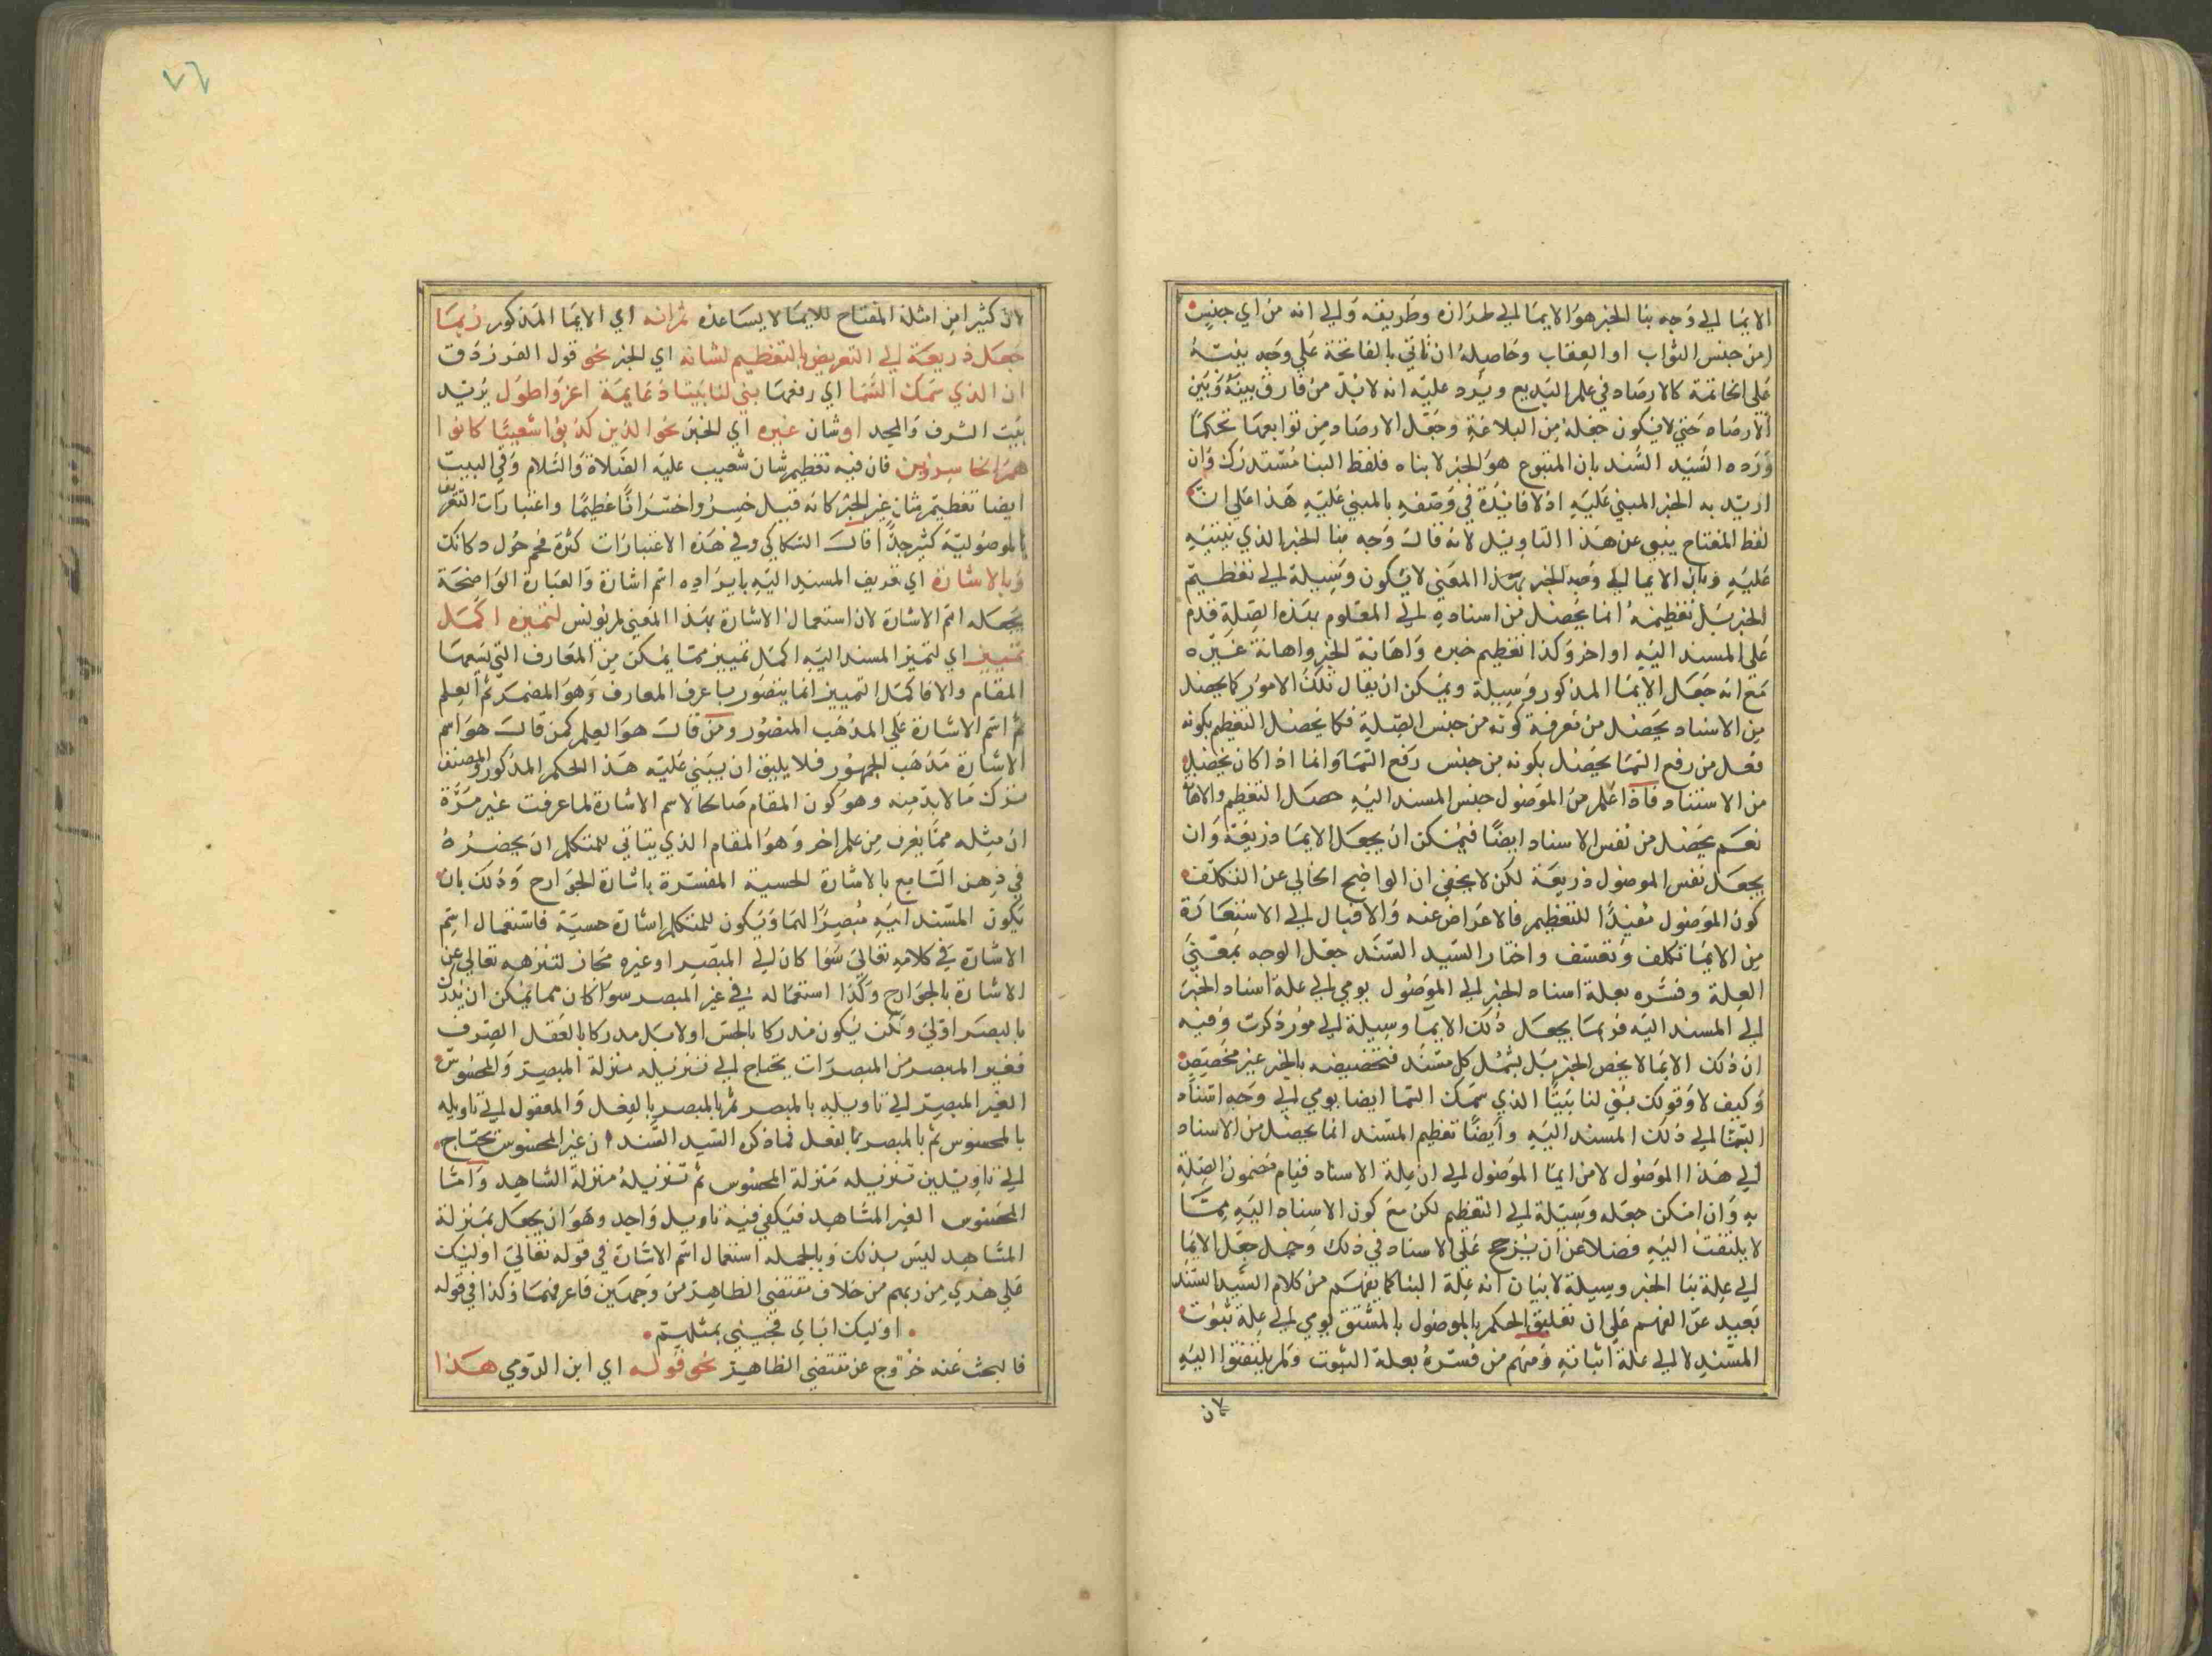 الايما الي وجه بنا الخبر هو الايما الي طرازه وطريقه والي انه من اي جنس
امن جنس الثواب او العقاب وحاصله ان تاتي بالفاتحة علي وجه ينبه
علي الخاتمة كالارصاد في علم البديع ويرد عليه انه لا بد من فارق بينه وبين
الارصاد حتي لا يكون جعله من البلاغة وجعل الارصاد من توابعها تحكما
ورده السيد السند بان المنبوح هو الخبر لا بناه فلفظ البنا مستدرك وان
اريد به الخبر المبني عليه اذ لا فائدة في وصفه بالمبني عليه هذا علي ان
لفظ المفتاح ينبو عن هذا التاويل لانه قال وجه بنا الخبر الذي نبنيه
عليه وبان الايما الي وجه الخبر بهذا المعني لا يكون وسيلة الي تعظيم
الخبر بل تعظيمه انما يحصل من اسناده الي المعلوم بهذه الصلة قدم
علي المسند اليه او اخر وكذا تعظيم خبره واهانة الخبر واهانة غيره
مع انه جعل الايما المذكور وسيلة ويمكن ان يقال تلك الامور كما يحصل
من الاسناد يحصل من معرفة كونه من جنس الصلة فكما يحصل التعظيم بكونه
فعل من رفع السما يحصل بكونه من جنس رفع السما وانما اذا كان يحصل
من الاسناد فاذا علم من الموصول جنس المسند اليه حصل التعظيم والاها
نعم يحصل من نفس الاسناد ايضا فيمكن ان يجعل الايما ذريعة وان
يجعل نفس الموصول ذريعة لكن لا يخفي ان الواضح الخالي عن التكلف
كون الموصول مفيدا للتعظيم فالاعراض عنه والاقبال الي الاستعانة
من الايما تكلف وتعسف واختار السيد السند جعل الوجه بمعني
العلة وفسره بعلة اسناد الخبر الي الموصول يومي الي علة اسناد الخبر
الي المسند اليه فربما يجعل ذلك الايما وسيلة الي امور ذكرت وفيه
ان ذلك الايما لا يخص الخبر بل يشمل كل مسند فتخصيصه بالخبر غير مخصص
وكيف لا وقولك بني لنا بيتا الذي سمك السما ايضا يومي الي وجه اسناد
البنا الي ذلك المسند اليه وايضا تعظيم المسند انما يحصل من الاسناد
الي هذا الموصول لا من ايما الموصول الي ان علة الاسناد قيام مضمون الصلة
به وان امكن جعله وسيلة الي التعظيم لكن مع كون الاسناد اليه مما
لا يلتفت اليه فضلا عن ان يرجح علي الاسناد في ذلك وحمل جعل الايما
الي علة بنا الخبر وسيلة لا بيان انه علة البنا كما يفهم من كلام السيد السند
بعيد عن الفهم علي ان تعليق الحكم بالموصول بالمشتق يومي الي علة ثبوت
المسند لا الي علة اثباته ومنهم من فسره بعلة الثبوت ولم يلتفتوا اليه
لان
٧٦
لان كثيرا من امثلة المفتاح للايما لا يساعده ثم انه اي الايما المذكور ربما
جعل ذريعة الي التعريض بالتعظيم لشانه اي الخبر نحو قول الفرزدق
ان الذي سمك السما اي رفعها بني لنا بيتا دعايمه اعز واطول يريد
بيت الشرف والمجد او شان غيره اي الخبر نحو الذين كذبوا شعيبا كانوا
هم الخاسرين فان فيه تعظيم شان شعيب عليه الصلاة والسلام وفي البيت
ايضا تعظيم شان غير الخبر كانه قيل خسروا خسرانا عظيما واعتبارات التعريف
بالموصولية كثير جدا قال السكاكي وفي هذه الاعتبارات كثرة فحم حول ذكائك
وبالاشارة اي تعريف المسند اليه بايراده اسم اشارة والعبارة الواضحة
بجعله اسم الاشارة لان استعمال الاشارة بهذا المعني لم يونس لتميزه اكمل
تمييز اي لتميز المسند اليه اكمل تمييز مما يمكن من المعارف التي يسعها
المقام والا فاكمل التمييز انما يتصور باعرف المعارف وهو المضمر ثم العلم
ثم اسم الاشارة علي المذهب المنصور ومن قال هو العلم كمن قال هو اسم
الاشارة مذهب الجمهور فلا يليق ان يبني عليه هذا الحكم المذكور والمصنف
ترك ما لا بد منه وهو كون المقام صالحا لاسم الاشارة لما عرفت غير مرة
ان مثله مما يعرف من علم اخر وهو المقام الذي يتاتي للمتكلم ان يحضره
في ذهن السامع بالاشارة الحسية المفسرة باشارة الجوارح وذلك بان
يكون المسند اليه مبصرا للسامع ويكون للمتكلم اشارة حسية فاستعمال اسم
الاشارة في كلامه تعالي سوا كان الي المبصر او غيره مجاز لتنزهه تعالي عن
الاشارة بالجوارح وكذا استعماله في غير المبصر سوا كان مما يمكن ان يدرك
بالبصر اولي ولكن يكون مدركا بالحس اولا بل مدركا بالعقل الصرف
فغير المبصر من المبصرات يحتاج الي تنزيله منزلة المبصر والمحسوس
الغير المبصر الي تاويله بالمبصر ثم بالمبصر بالفعل والمعقول الي تاويله
بالمحسوس ثم بالمبصر بالفعل فما ذكره السيد السند ان غير المحسوس يحتاج
الي تاويلين تنزيله منزلة المحسوس ثم تنزيله منزلة الشاهد واما
المحسوس الغير المشاهد فيكفي فيه تاويل واحد وهو ان يجعل بمنزلة
المشاهد ليس بذلك وبالجملة استعمال اسم الاشارة في قوله تعالي اوليك
علي هدي من ربهم من خلاف مقتضي الظاهر من وجهين فاعرفهما وكذا في قوله
اوليك اباي فجيني بمثلهم
فالبحث عنه خروج عن مقتضي الظاهر نحو قوله اي ابن الرومي هذا